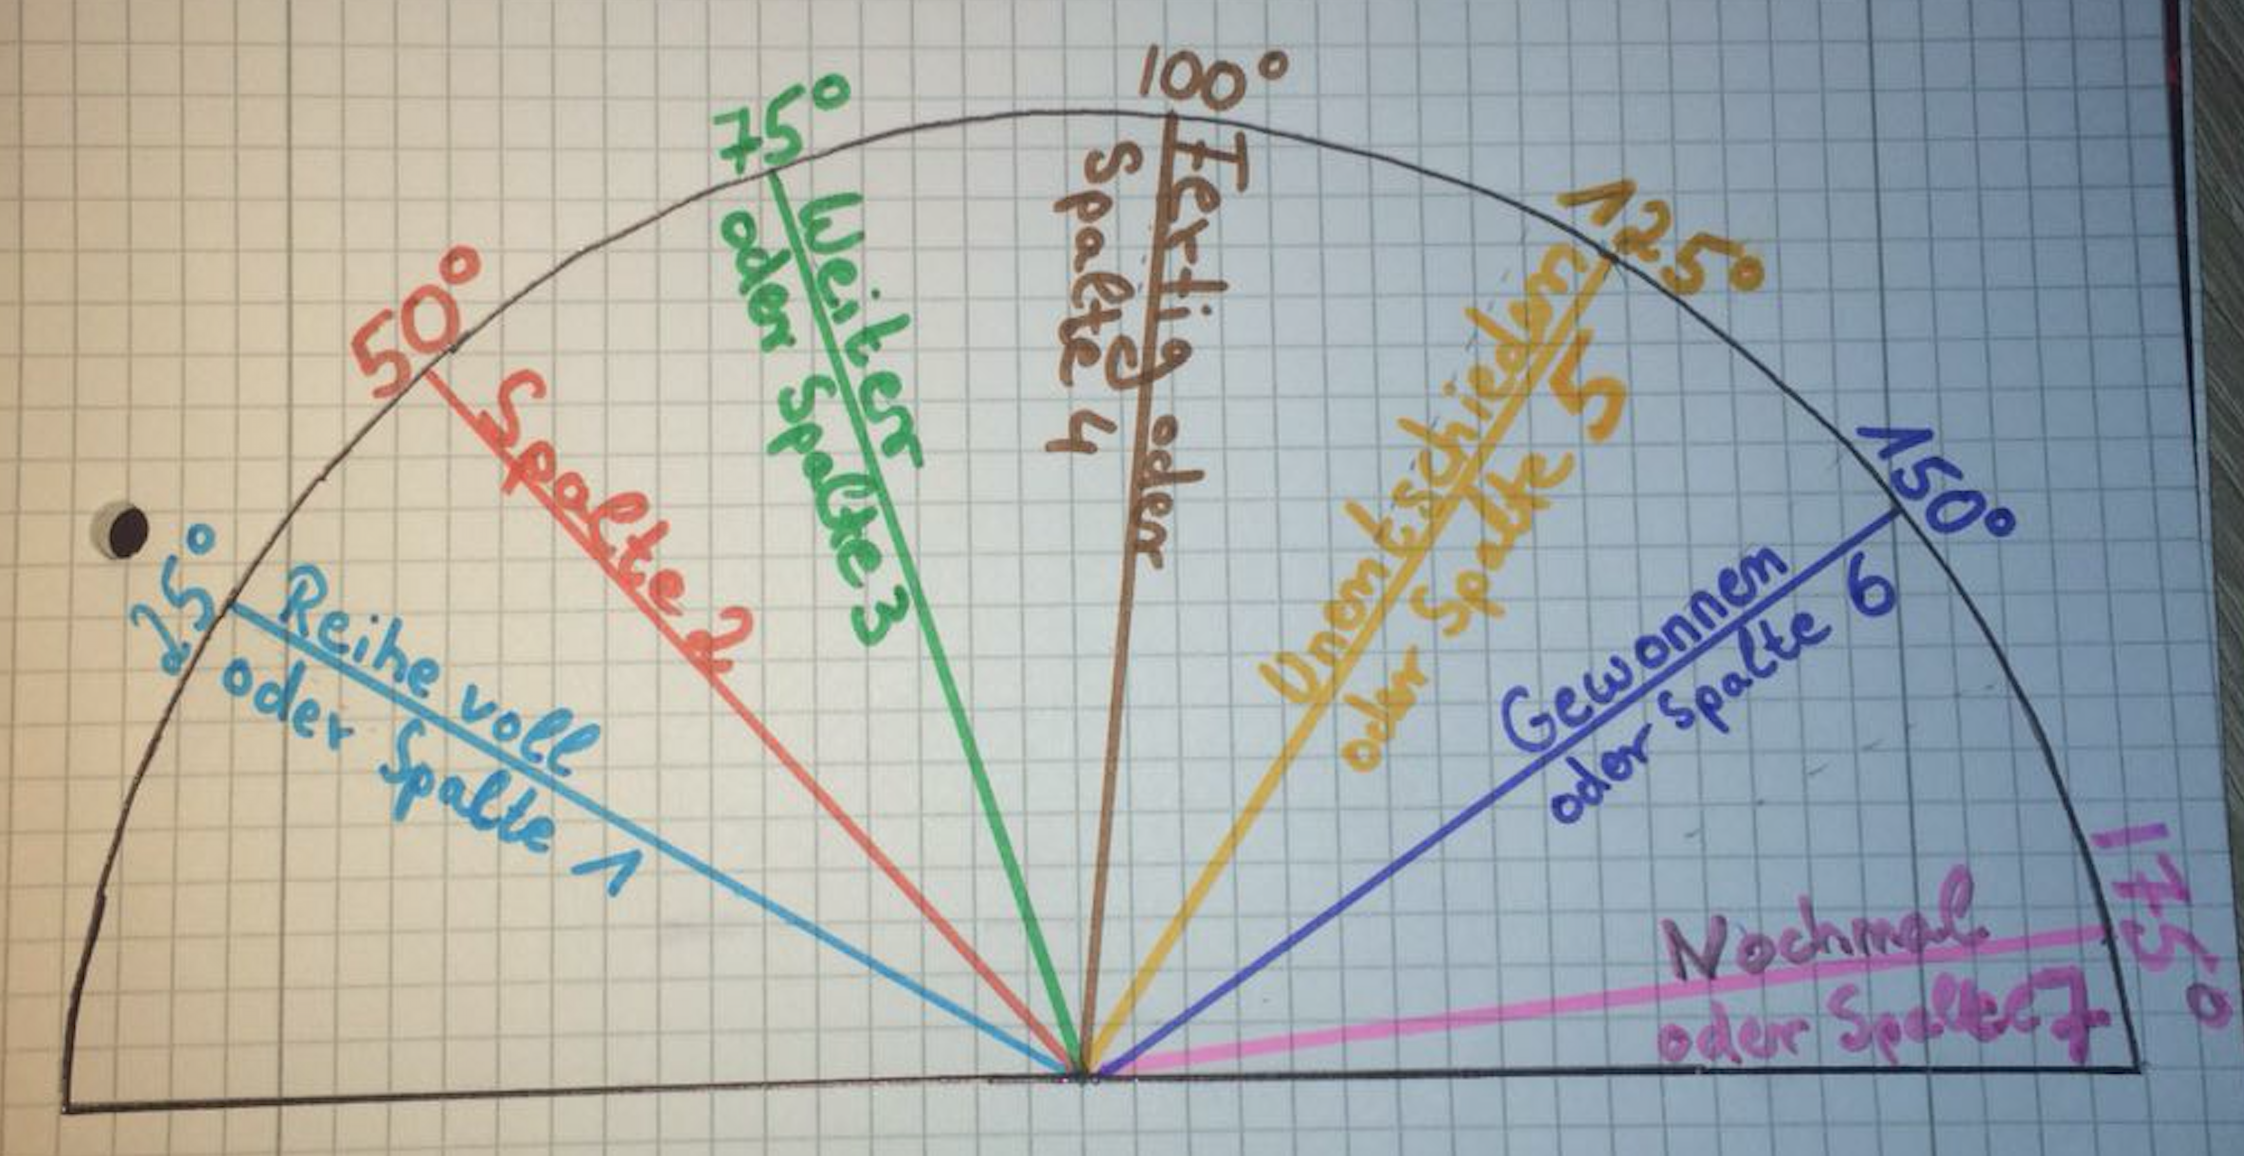 25°
Reihe voll
oder Spalte 1
50°
Spalte 2
75°
Weiter
oder Spalte 3
100°
Fertig oder
Spalte 4
125°
Unentschieden
oder Spalte 5
150°
Gewonnen
oder Spalte 6
175°
Nochmal
oder Spalte 7